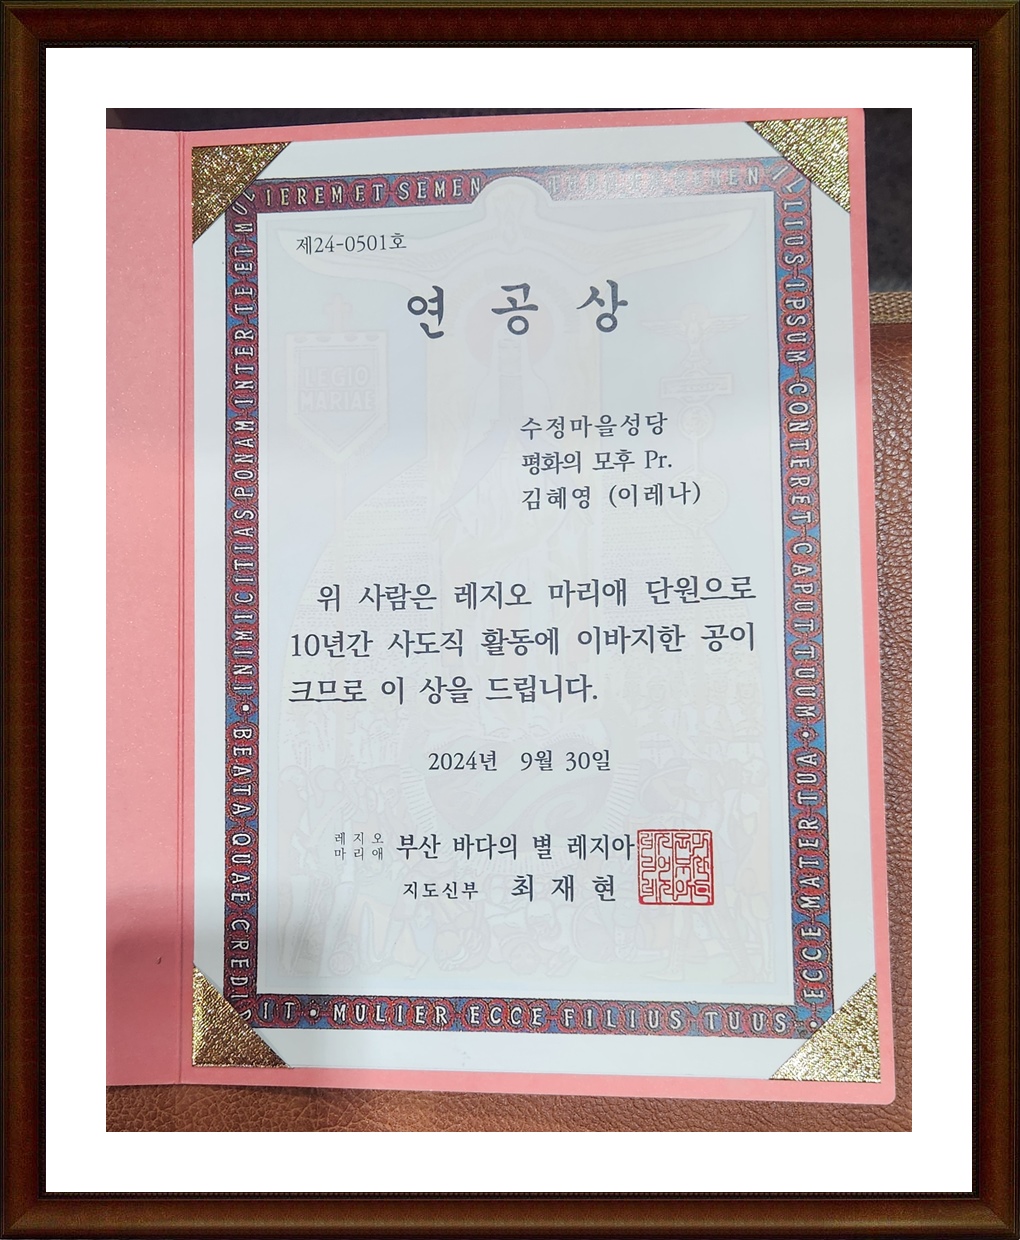 IEREM ET SEMEN
ILLIUS IPSUM CONTERET CAPUT TUUM • ECCE MATER TUA •
INIMICITIAS PONAM INTER TE ET MU
BEATA QUAE CREDI
IT • MULIER ECCE FILIUS TUUS •
제24-0501호
연 공 상
LEGIO
MARIAE
수정마을성당
평화의 모후 Pr.
김혜영 (이레나)
위 사람은 레지오 마리애 단원으로
10년간 사도직 활동에 이바지한 공이
크므로 이 상을 드립니다.
2024년 9월 30일
레지오
마리애
부산 바다의 별 레지아
지도신부 최 재 현